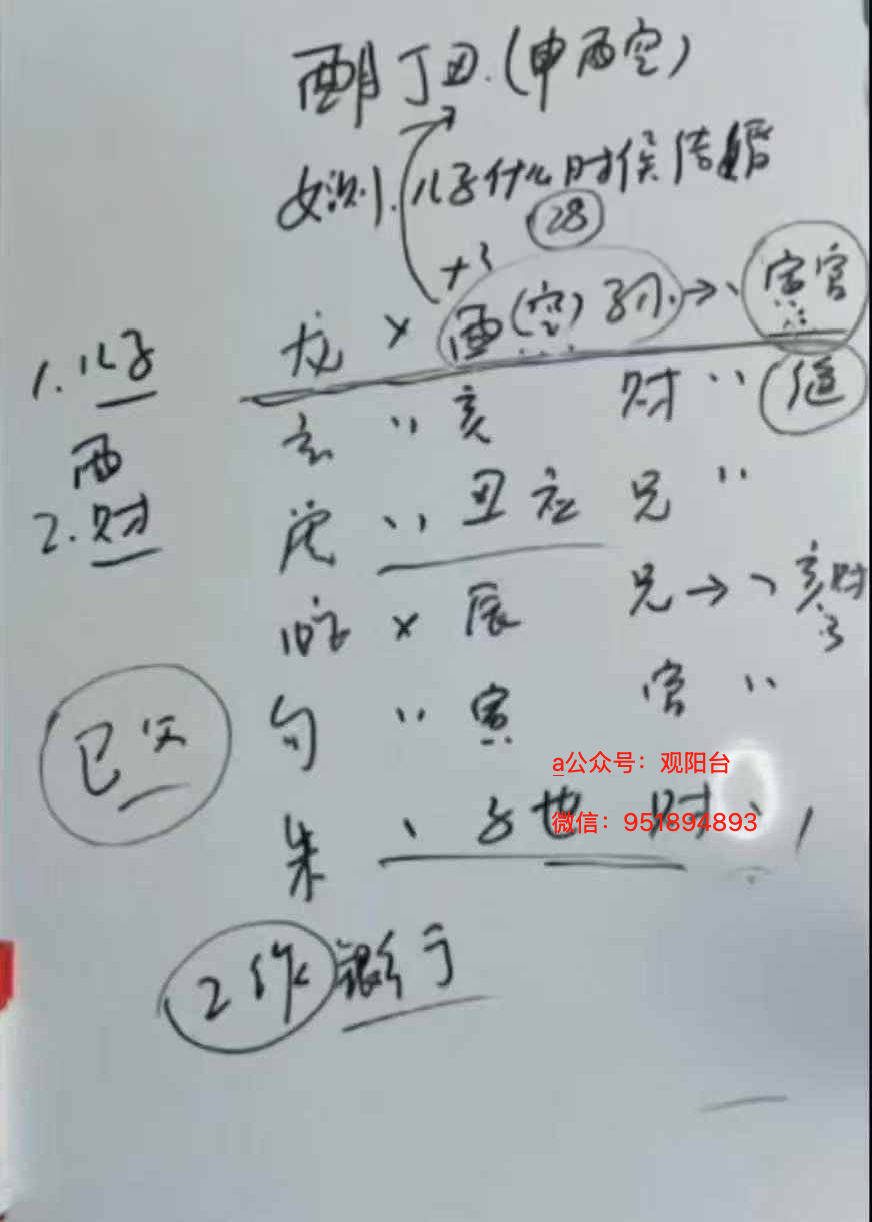 酉月丁丑.(申酉空)
女测.儿子什么时候结婚
28
龙 × 酉(空)孙.→、寅官
1.儿子
玄 、、亥 财 、、
酉
2.财
、、丑应 兄 、、
× 辰 兄→、亥财
勾 、、寅 官 、、
巳父
a公众号：观阳台
微信：951894893
朱 、子世 财
工作 银行